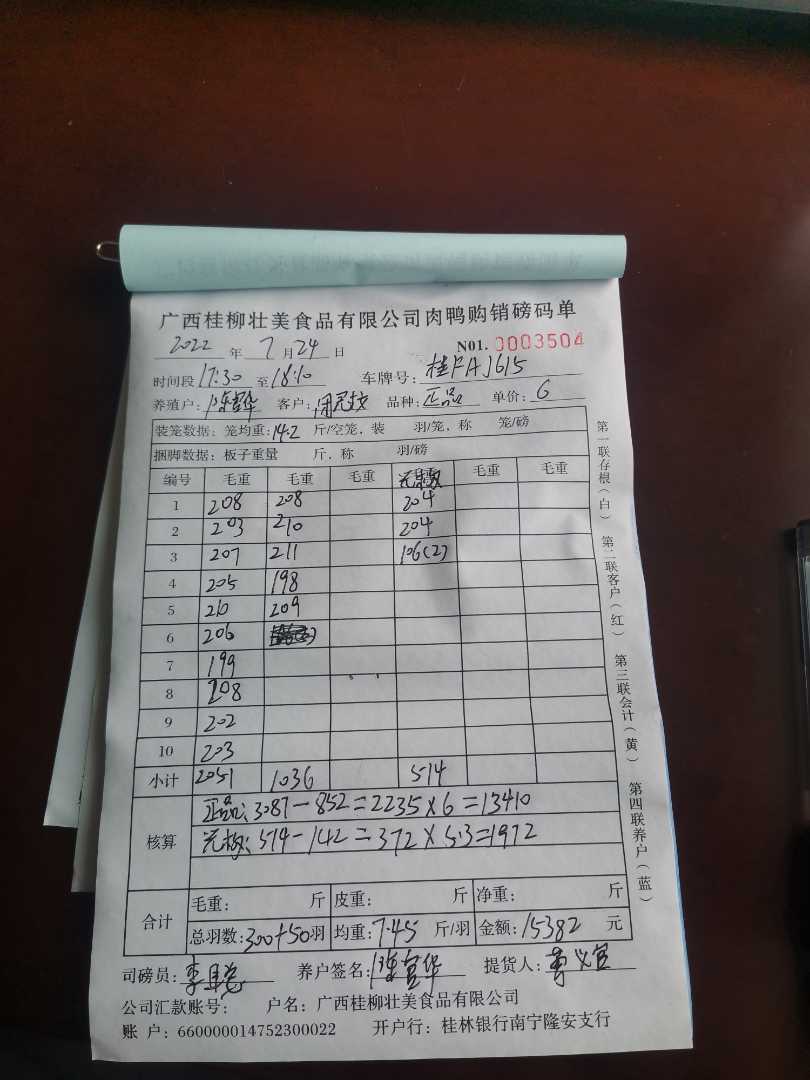 广西桂柳壮美食品有限公司肉鸭购销磅码单
2022 年 7 月 24 日 N01. 0003504
时间段 17:30 至 18:10 车牌号: 桂FAJ615
养殖户: 陈 华 客户: 品种: 正品 单价: 6
装笼数据: 笼均重: 14.2 斤/空笼, 装 羽/笼, 称 笼/磅
捆脚数据: 板子重量 斤, 称 羽/磅
编号 毛重 毛重 毛重 毛重 毛重
1 208 208 204
2 203 210 204
3 207 211 106(2)
4 205 198
5 210 209
6 206
7 199
8 208
9 202
10 203
小计 2051 1036 514
核算
正品: 3087-852=2235×6=13410
: 514-142=372×5.3=1972
合计
毛重: 斤 皮重: 斤 净重: 斤
总羽数: 300+50 羽 均重: 7.45 斤/羽 金额: 15382 元
司磅员: 李 养户签名: 陈 华 提货人:
公司汇款账号: 户名: 广西桂柳壮美食品有限公司
账 户: 660000014752300022 开户行: 桂林银行南宁隆安支行
第一联存根(白) 第二联客户(红) 第三联会计(黄) 第四联养户(蓝)